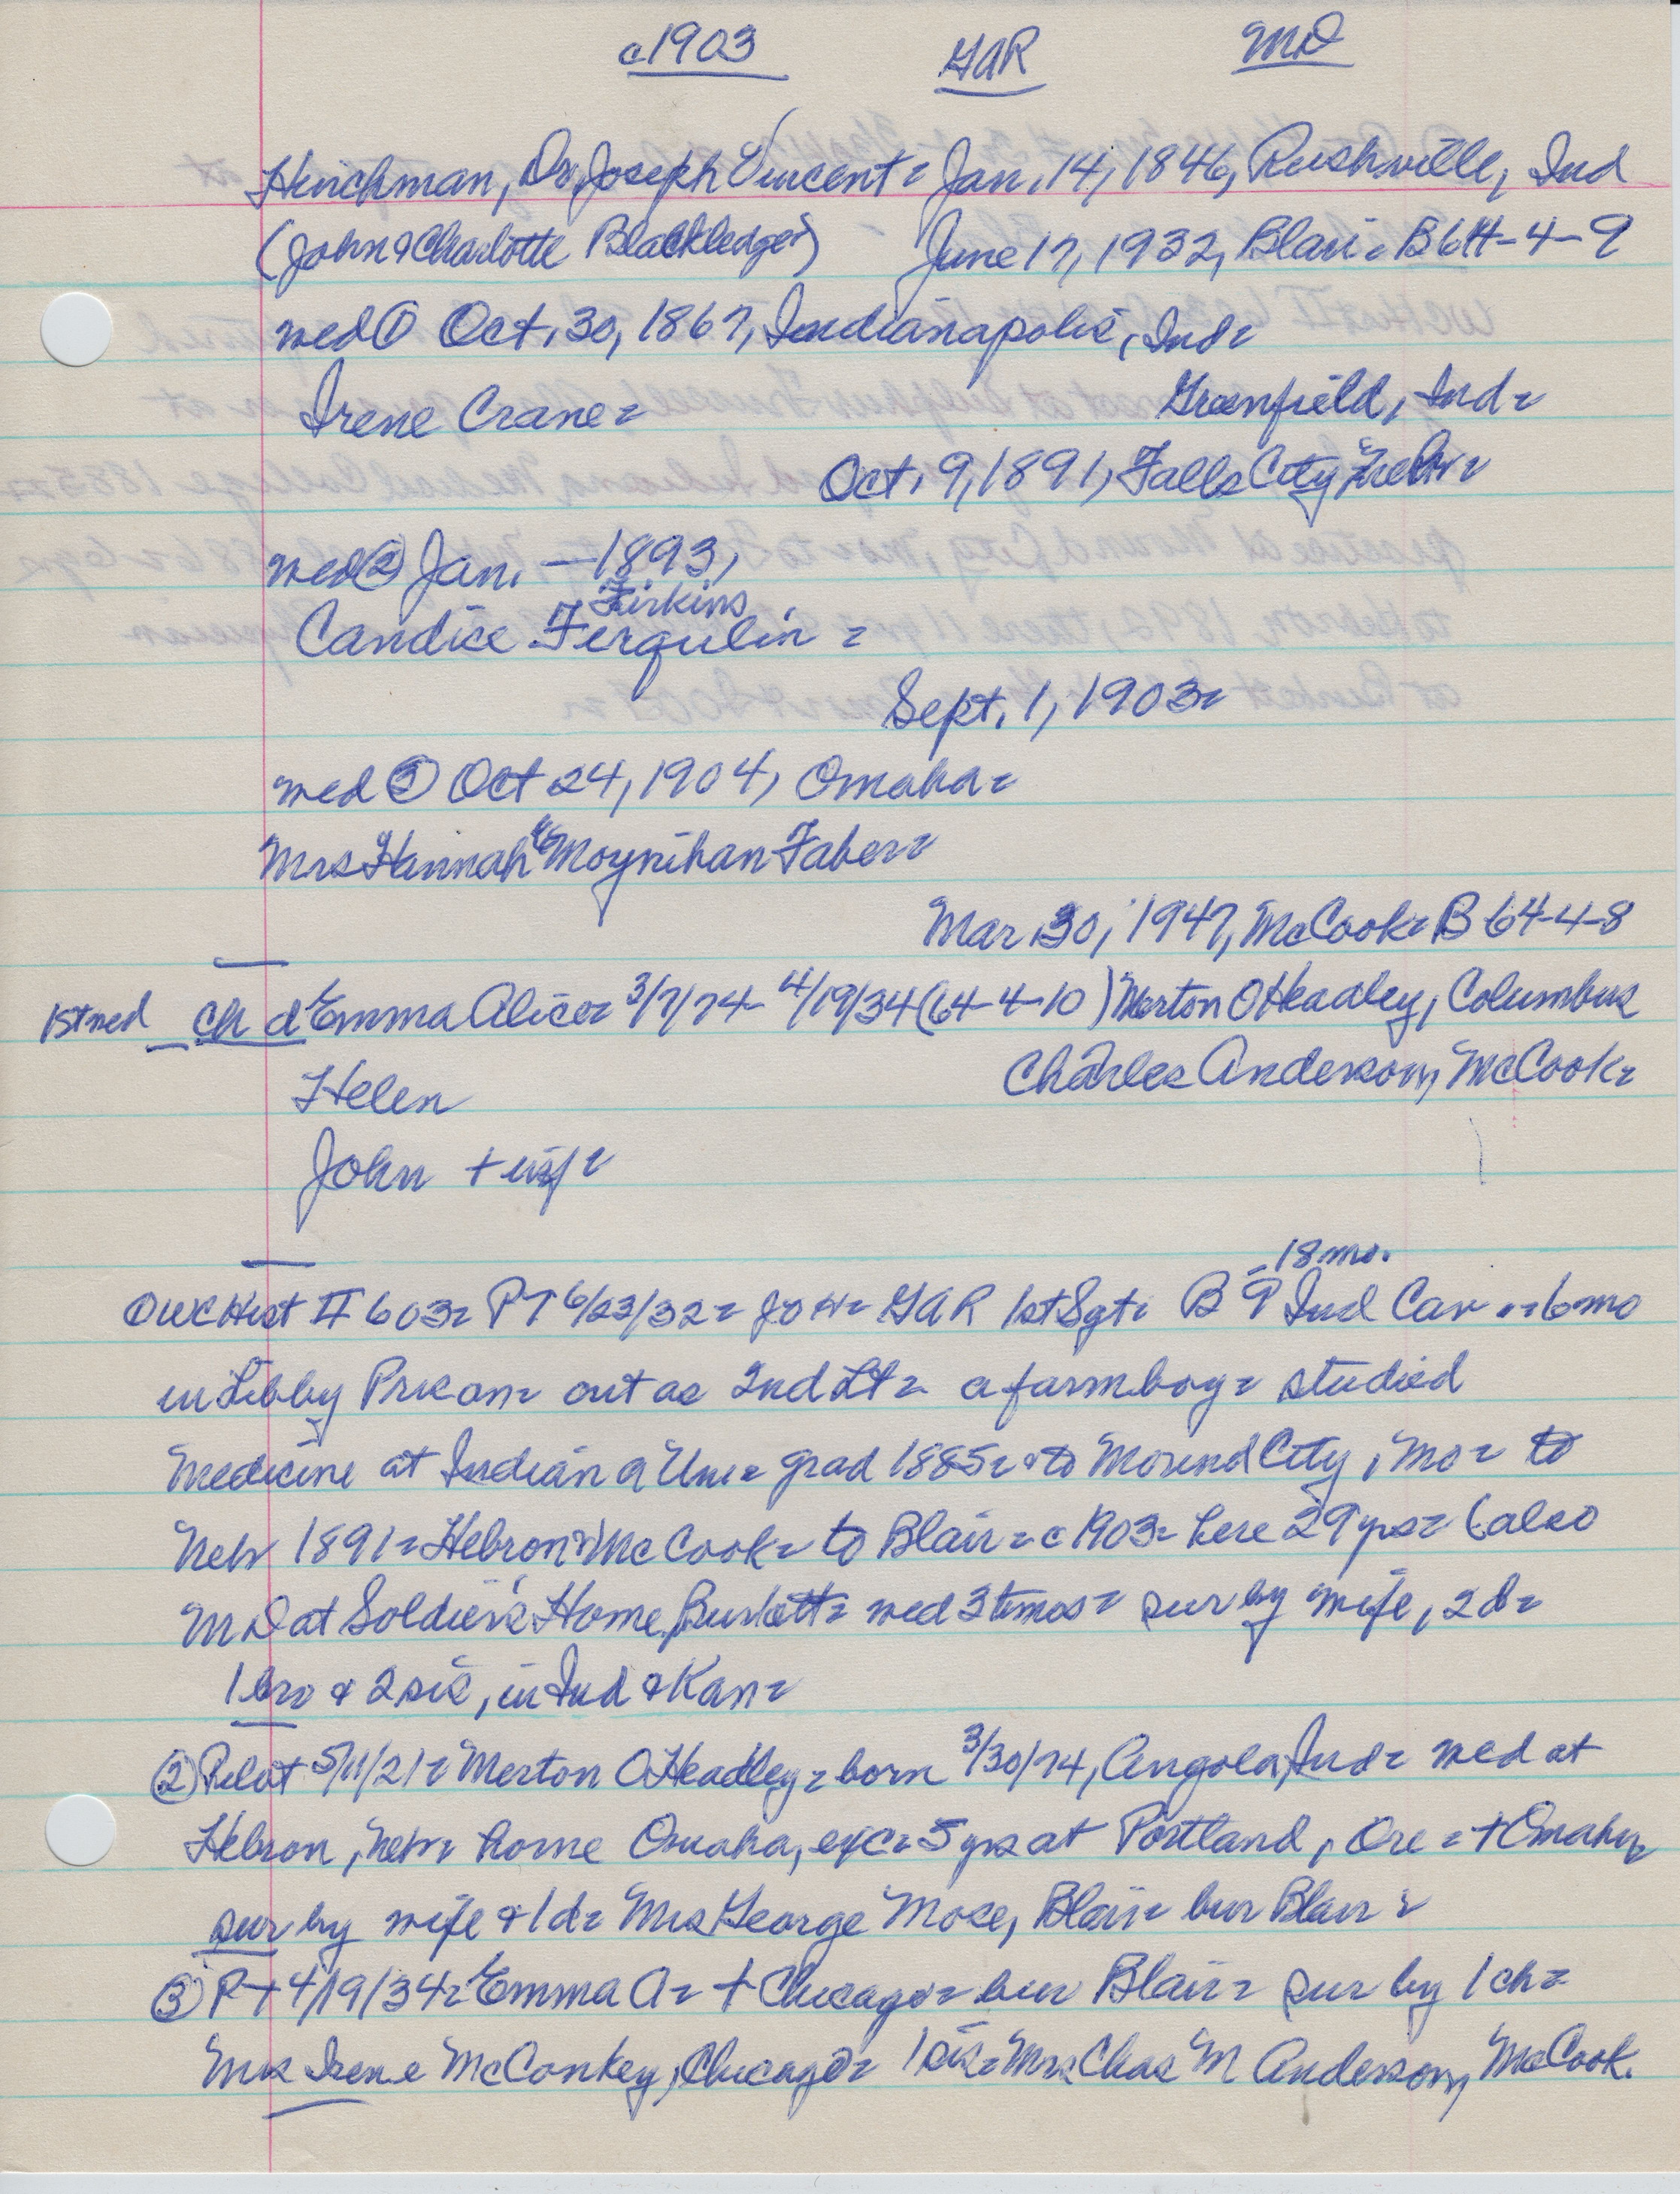 c1903 GAR MD
Hinchman, Dr. Joseph Vincent = Jan. 14, 1846, Rushville, Ind
(John & Charlotte Blackledge) June 17, 1932, Blair = B 64-4-9
wed ① Oct. 30, 1867, Indianapolis, Ind =
Irene Crane = Greenfield, Ind =
Oct. 9, 1891, Falls City Nebr =
wed ② Jan. — 1893,
Firkins
Candice Ferqulin =
Sept. 1, 1903 =
wed ③ Oct 24, 1904, Omaha =
Mrs Hannah Moynihan Faber =
Mar 30, 1947, McCook = B 64-4-8
1st wed ch d Emma Alice = 3/7/74 - 4/19/34 (64-4-10) Merton O Headley, Columbus
Helen Charles Anderson, McCook =
John + inf =
18 mo.
① WC Hist II 603 = PT 6/23/32 = GAR 1st Sgt = B 9 Ind Cav = 6 mo
in Libby Prison = out as 2nd Lt = a farm boy = studied
Medicine at Indiana Uni = grad 1885 = to Mound City, Mo = to
Nebr 1891 = Hebron & McCook = to Blair = c 1903 = here 29 yrs = (also
MD at Soldier's Home, Burkett = wed 3 times = sur by wife, 2 d =
1 bro & 2 sis, in Ind & Kan =
② Pilot 5/11/21 = Merton O Headley = born 3/30/74, Angola, Ind = wed at
Hebron, Nebr = home Omaha, exc = 5 yrs at Portland, Ore = + Omaha,
sur by wife & 1 d = Mrs George Mose, Blair = bur Blair =
③ P + 4/19/34 = Emma A = + Chicago = bur Blair = sur by 1 ch =
Mrs Irene McConkey, Chicago = 1 sis = Mrs Chas M Anderson, McCook.